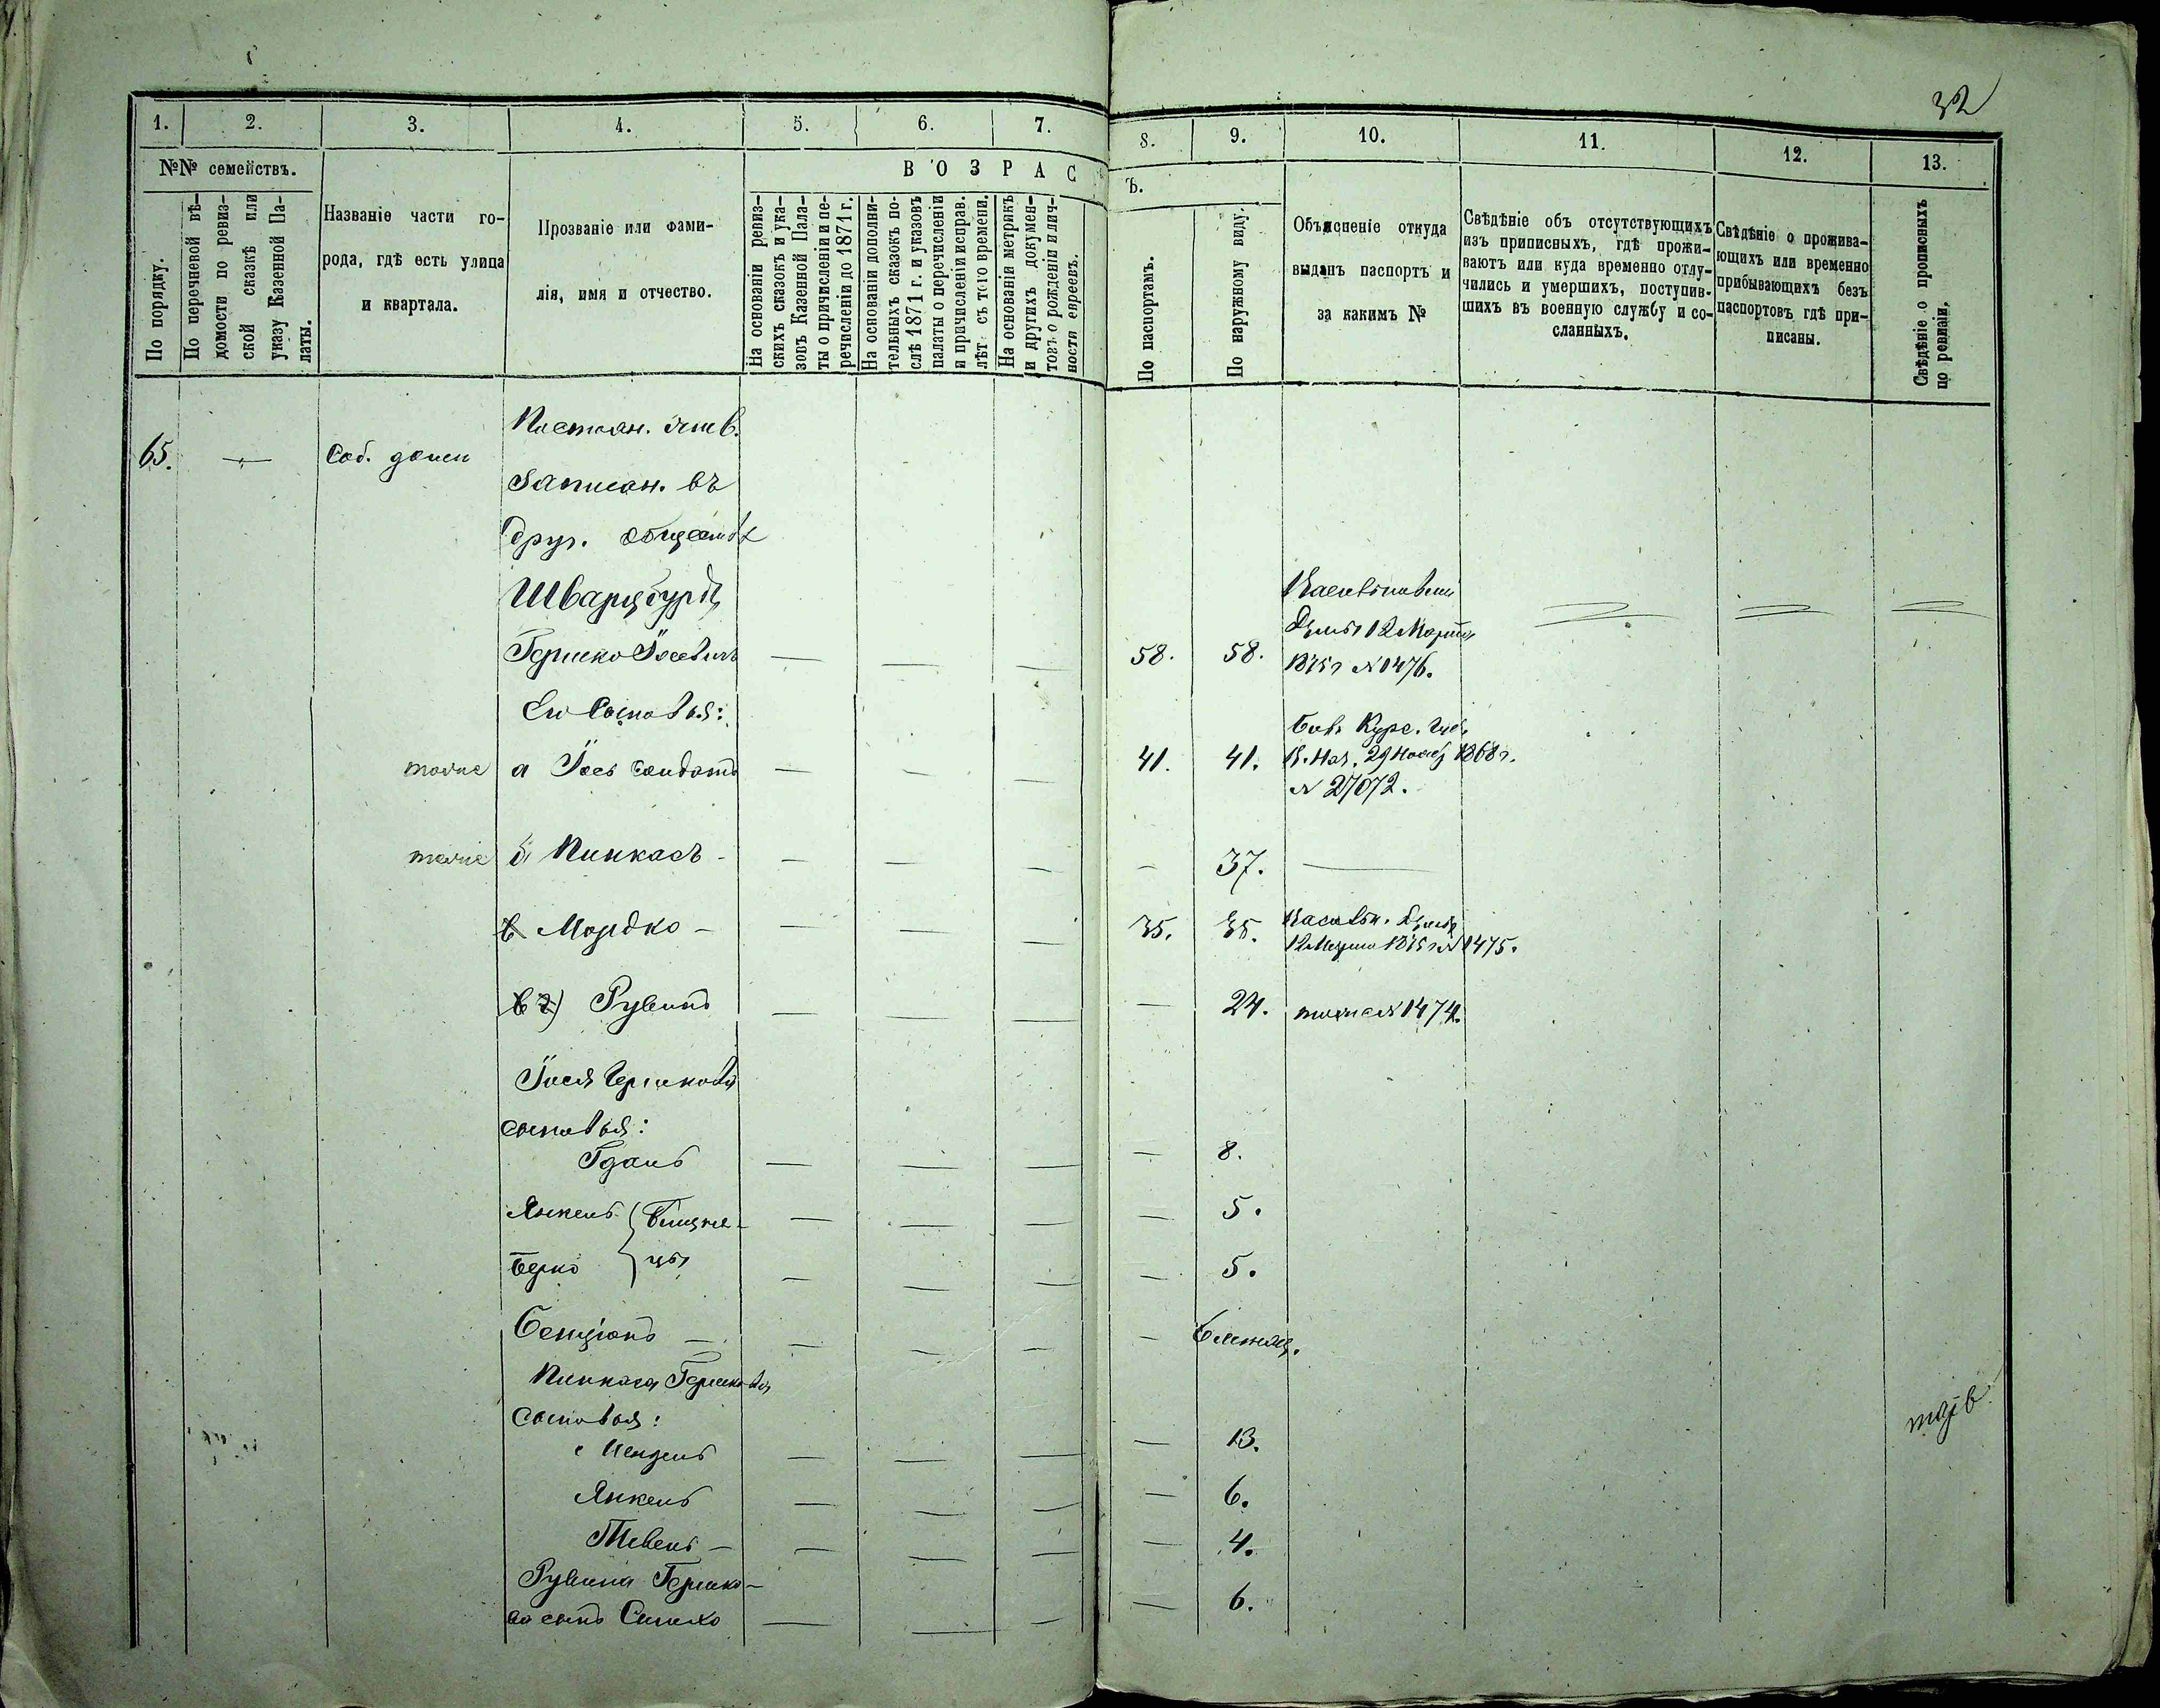 32
1. 2. 3. 4. 5. 6. 7. 8. 9. 10. 11. 12. 13.
№№ семействъ.
В О З Р А С
Ъ.
По порядку.
По перечневой вѣ-
домости по ревиз-
ской сказкѣ или
указу Казенной Па-
латы.
Названіе части го-
рода, гдѣ есть улица
и квартала.
Прозваніе или фами-
лія, имя и отчество.
На основаніи ревиз-
скихъ сказокъ и ука-
зовъ Казенной Пала-
ты о причисленіи и пе-
речисленіи до 1871 г.
На основаніи дополни-
тельныхъ сказокъ по-
слѣ 1871 г. и указовъ
палаты о перечисленіи
и причисленіи исправ.
лѣт съ того времени.
На основаніи метрикъ
и другихъ докумен-
товъ о рожденіи и лич-
ности евреевъ.
По паспортамъ.
По наружному виду.
Объясненіе откуда
выданъ паспортъ и
за какимъ №
Свѣдѣніе объ отсутствующихъ
изъ приписныхъ, гдѣ прожи-
ваютъ или куда временно отлу-
чились и умершихъ, поступив-
шихъ въ военную службу и со-
сланныхъ.
Свѣдѣніе о прожива-
ющихъ или временно
прибывающихъ безъ
паспортовъ гдѣ при-
писаны.
Свѣдѣніе о прописныхъ
по ревизіи.
Постоян. жив.
65. — Соб. домъ
Записан. въ
друг. обществѣ
Шварцбурдъ
Гершко Іосевичъ — — — 58. 58.
Думы 12 Марта
1875 г №1476.
Его Сыновья:
тоже а Іось солдатъ — — — 41. 41. 29 Нояб 1868 г.
№ 27072.
тоже б Пинкасъ — — — — 37. —
в Мордко — — — — 35. 35. Думы
12 Марта 1875 г №1475.
в г) Рувинъ — — — — 24. тоже №1474.
Іося Гершкова
сыновья:
Іданъ — — — — 8.
Янкель — — — — 5.
Берко — — — — 5.
Близне-
цы
Бенціонъ — — — — — 6 месяц.
Пинкаса Гершкова
сыновья:
Мендель — — — — 13.
Янкель — — — — 6.
Тевель — — — — — 4.
Рувина Гершко-
ва сынъ Симхо — — — — 6.